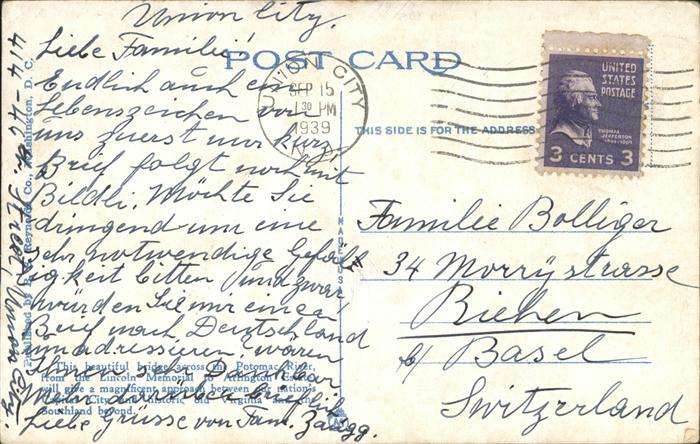 Union City.
Liebe Familie!
Endlich auch ein
Lebenszeichen von
uns zuerst nur kurz,
Brief folgt noch mit
Bildli. Möchte Sie
dringend um eine
sehr notwendige Gefäll
igkeit bitten und zwar
würden Sie mir einen
Brief nach Deutschland
umadressieren, wären
Ihnen sehr dankbar
Mehr darüber brieflich
Liebe Grüsse von Fam. Zaugg.
44-46 Street, Union City.
POST CARD
THIS SIDE IS FOR THE ADDRESS
UNION CITY
SEP 15
30 PM
1939
UNITED
STATES
POSTAGE
THOMAS
JEFFERSON
3 CENTS 3
Familie Bolliger
34 Morrystrasse
Riehen
b/ Basel
Switzerland
This beautiful bridge across the Potomac River,
from the Lincoln Memorial to Arlington
will give a magnificent approach between our nation's
Capital City and historic old Virginia and the
Southland beyond.
Reynolds Co., Washington, D. C.
MADE IN USA